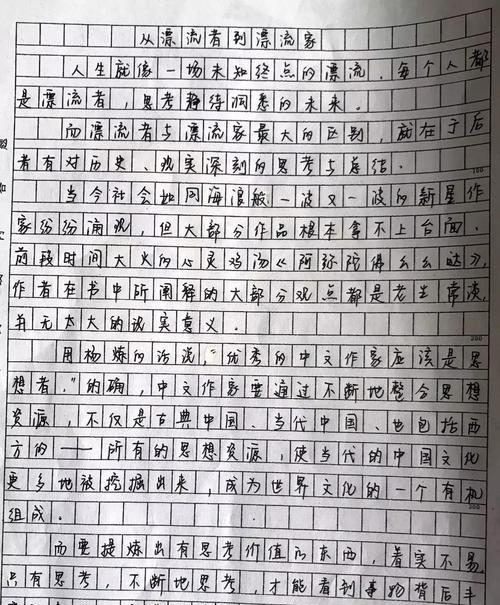 从漂流者到漂流家
人生就像一场未知终点的漂流，每个人都
是漂流者，思考静待洞悉的未来。
而漂流者与漂流家最大的区别，就在于后
者有对历史、现实深刻的思考与总结。
100
当今社会如同海浪般一波又一波的新星作
家纷纷涌现，但大部分作品根本拿不上台面。
前段时间大火的心灵鸡汤《阿弥陀得么么哒》，
作者在书中所阐释的大部分观点都是老生常谈，
并无太大的现实意义。
200
用杨炼的话说，“优秀的中文作家应该是思
想者。”的确，中文作家要通过不断地整合思想
资源，不仅是古典中国、当代中国、也包括西
方的——所有的思想资源，使当代的中国文化
更多地被挖掘出来，成为世界文化的一个有机
组成。
300
而要提炼出有思考价值的东西，着实不易。
只有思考，不断地思考，才能看到事物背后丰